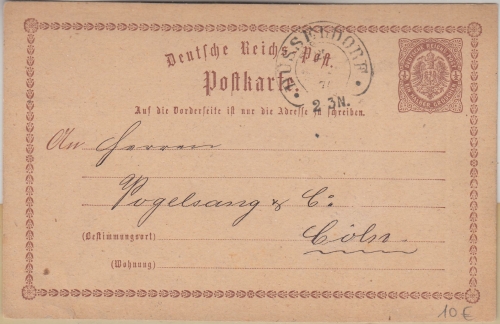 Deutsche Reichs-Post.
Postkarte
DUSSELDORF
2 3N.
Auf die Vorderseite ist nur die Adresse zu schreiben.
An Herren
Vogelsang & Co
(Bestimmungsort) Cöln
(Wohnung)
10 €